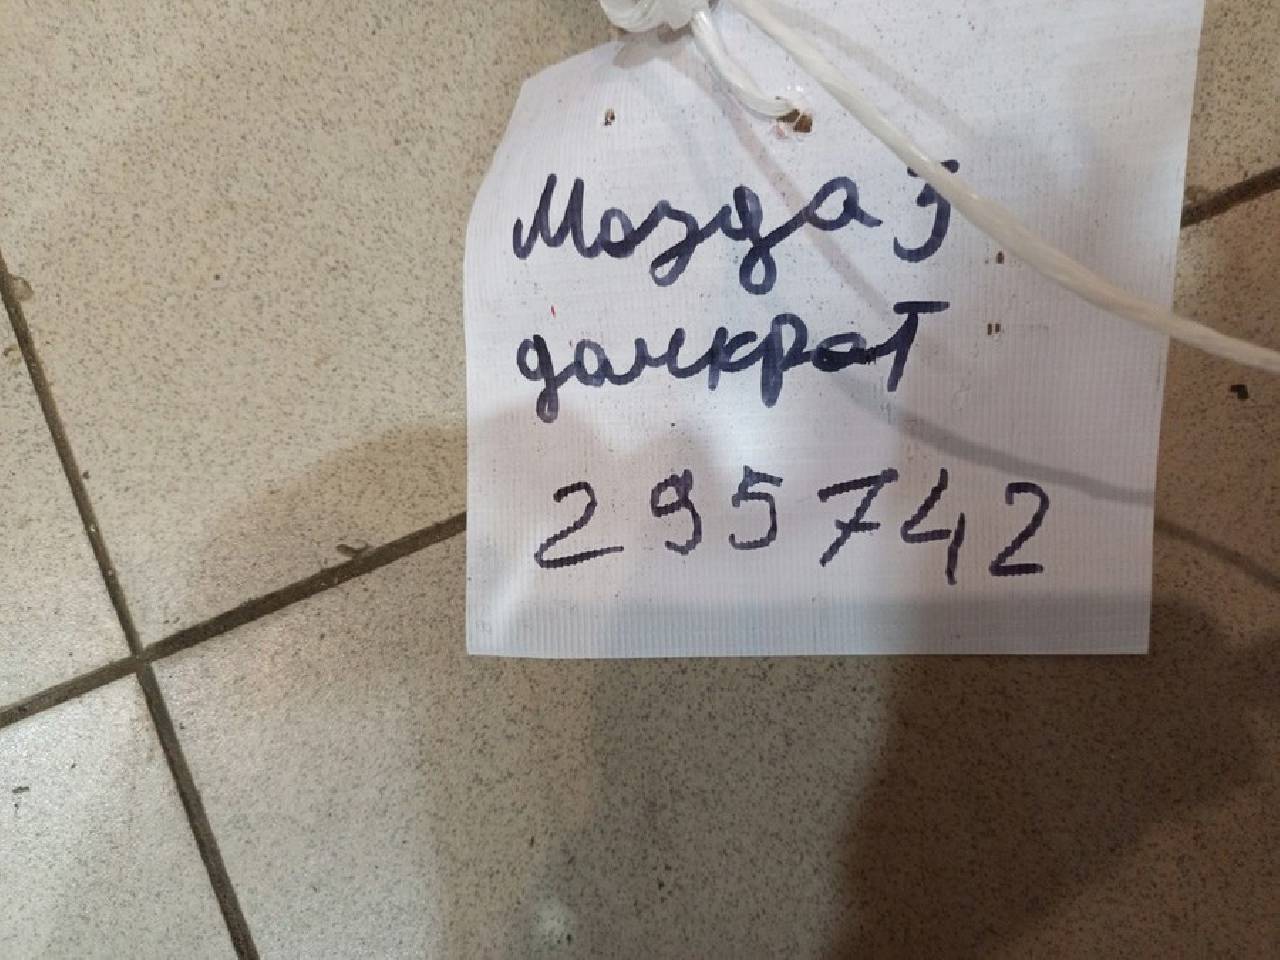 Мозда 3
домкрат
295742